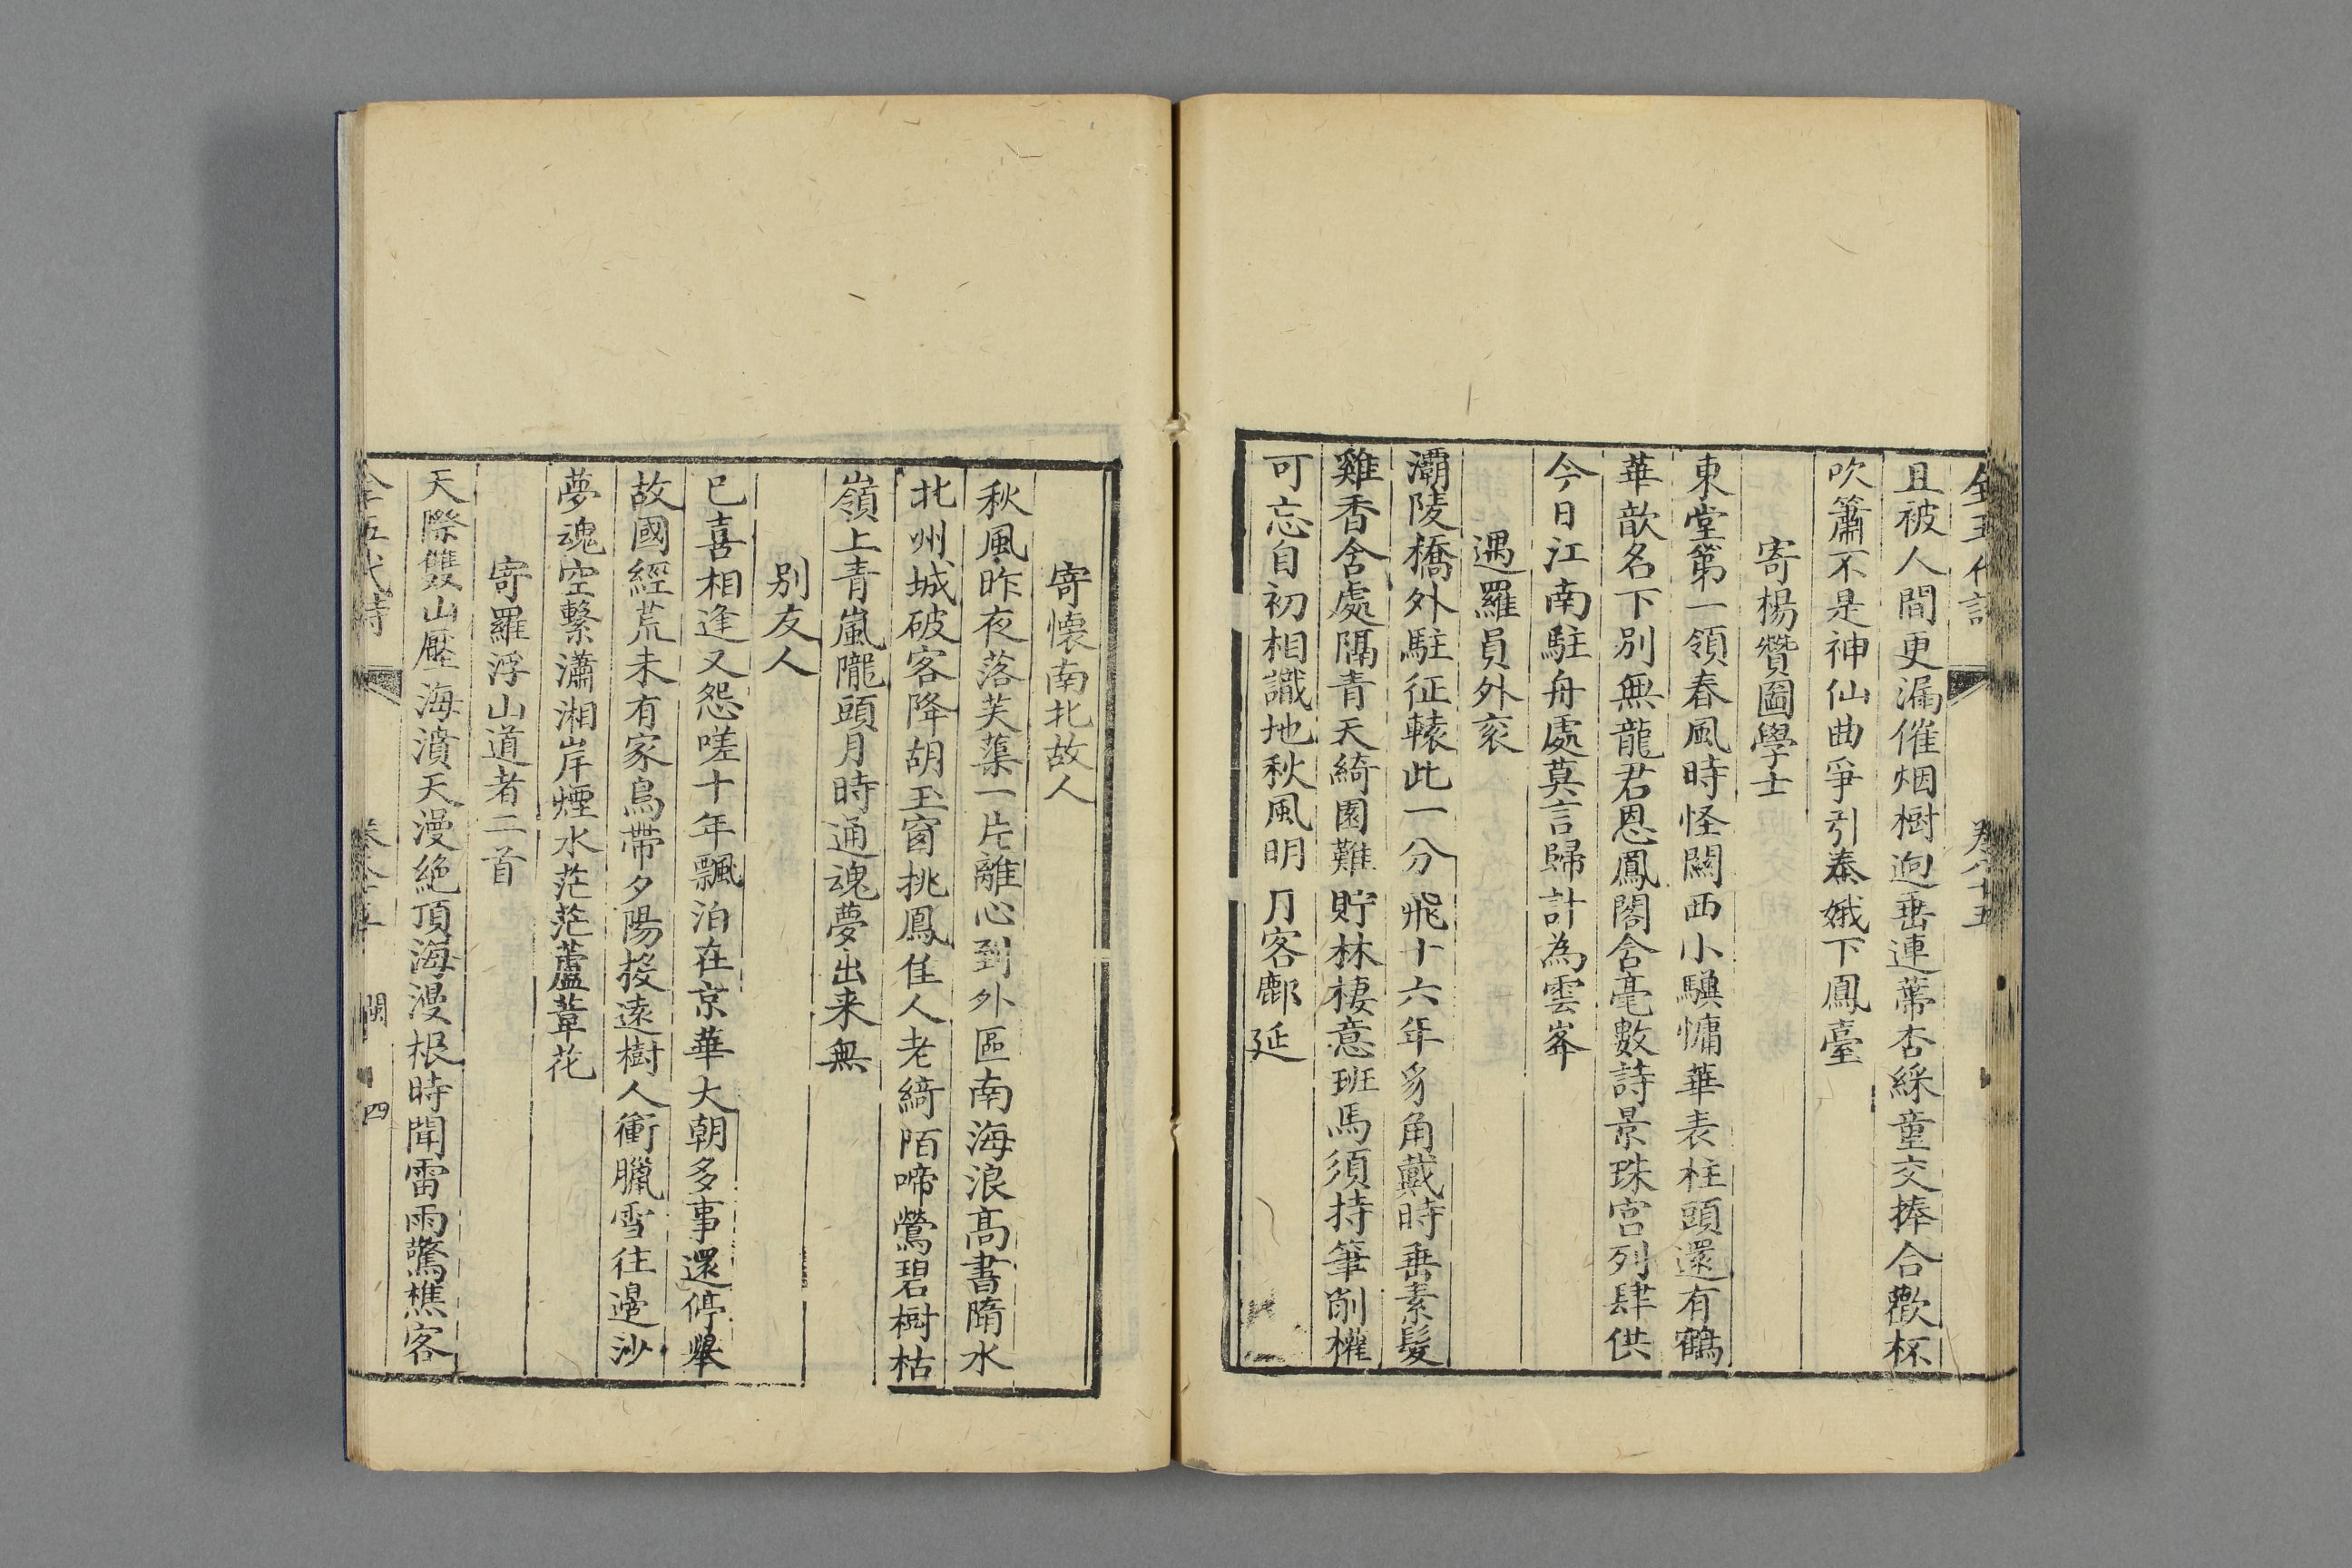 全五代詩 卷八十五
且被人間更漏催烟樹逈垂連蔕杏綵童交捧合歡杯
吹簫不是神仙曲爭引秦娥下鳳臺
寄楊贊圖學士
東堂第一領春風時怪關西小驥慵華表柱頭還有鶴
華歆名下別無龍君恩鳳閣含毫數詩景珠宮列肆供
今日江南駐舟處莫言歸計為雲峯
遇羅員外衮
灞陵橋外駐征轅此一分飛十六年豸角戴時垂素髮
雞香含處隔青天綺園難貯林棲意班馬須持筆削權
可忘自初相識地秋風明月客鄜延
寄懷南北故人
秋風昨夜落芙蕖一片離心到外區南海浪高書隋水
北州城破客降胡玉窗挑鳳佳人老綺陌啼鶯碧樹枯
嶺上青嵐隴頭月時通魂夢出来無
别友人
已喜相逢又怨嗟十年飄泊在京華大朝多事還停舉
故國經荒未有家鳥帶夕陽投遠樹人衝臘雪往邊沙
夢魂空繫瀟湘岸煙水茫茫蘆葦花
寄羅浮山道者二首
天際雙山壓海濆天漫絶頂海漫根時聞雷雨驚樵客
全五代詩 閩 四